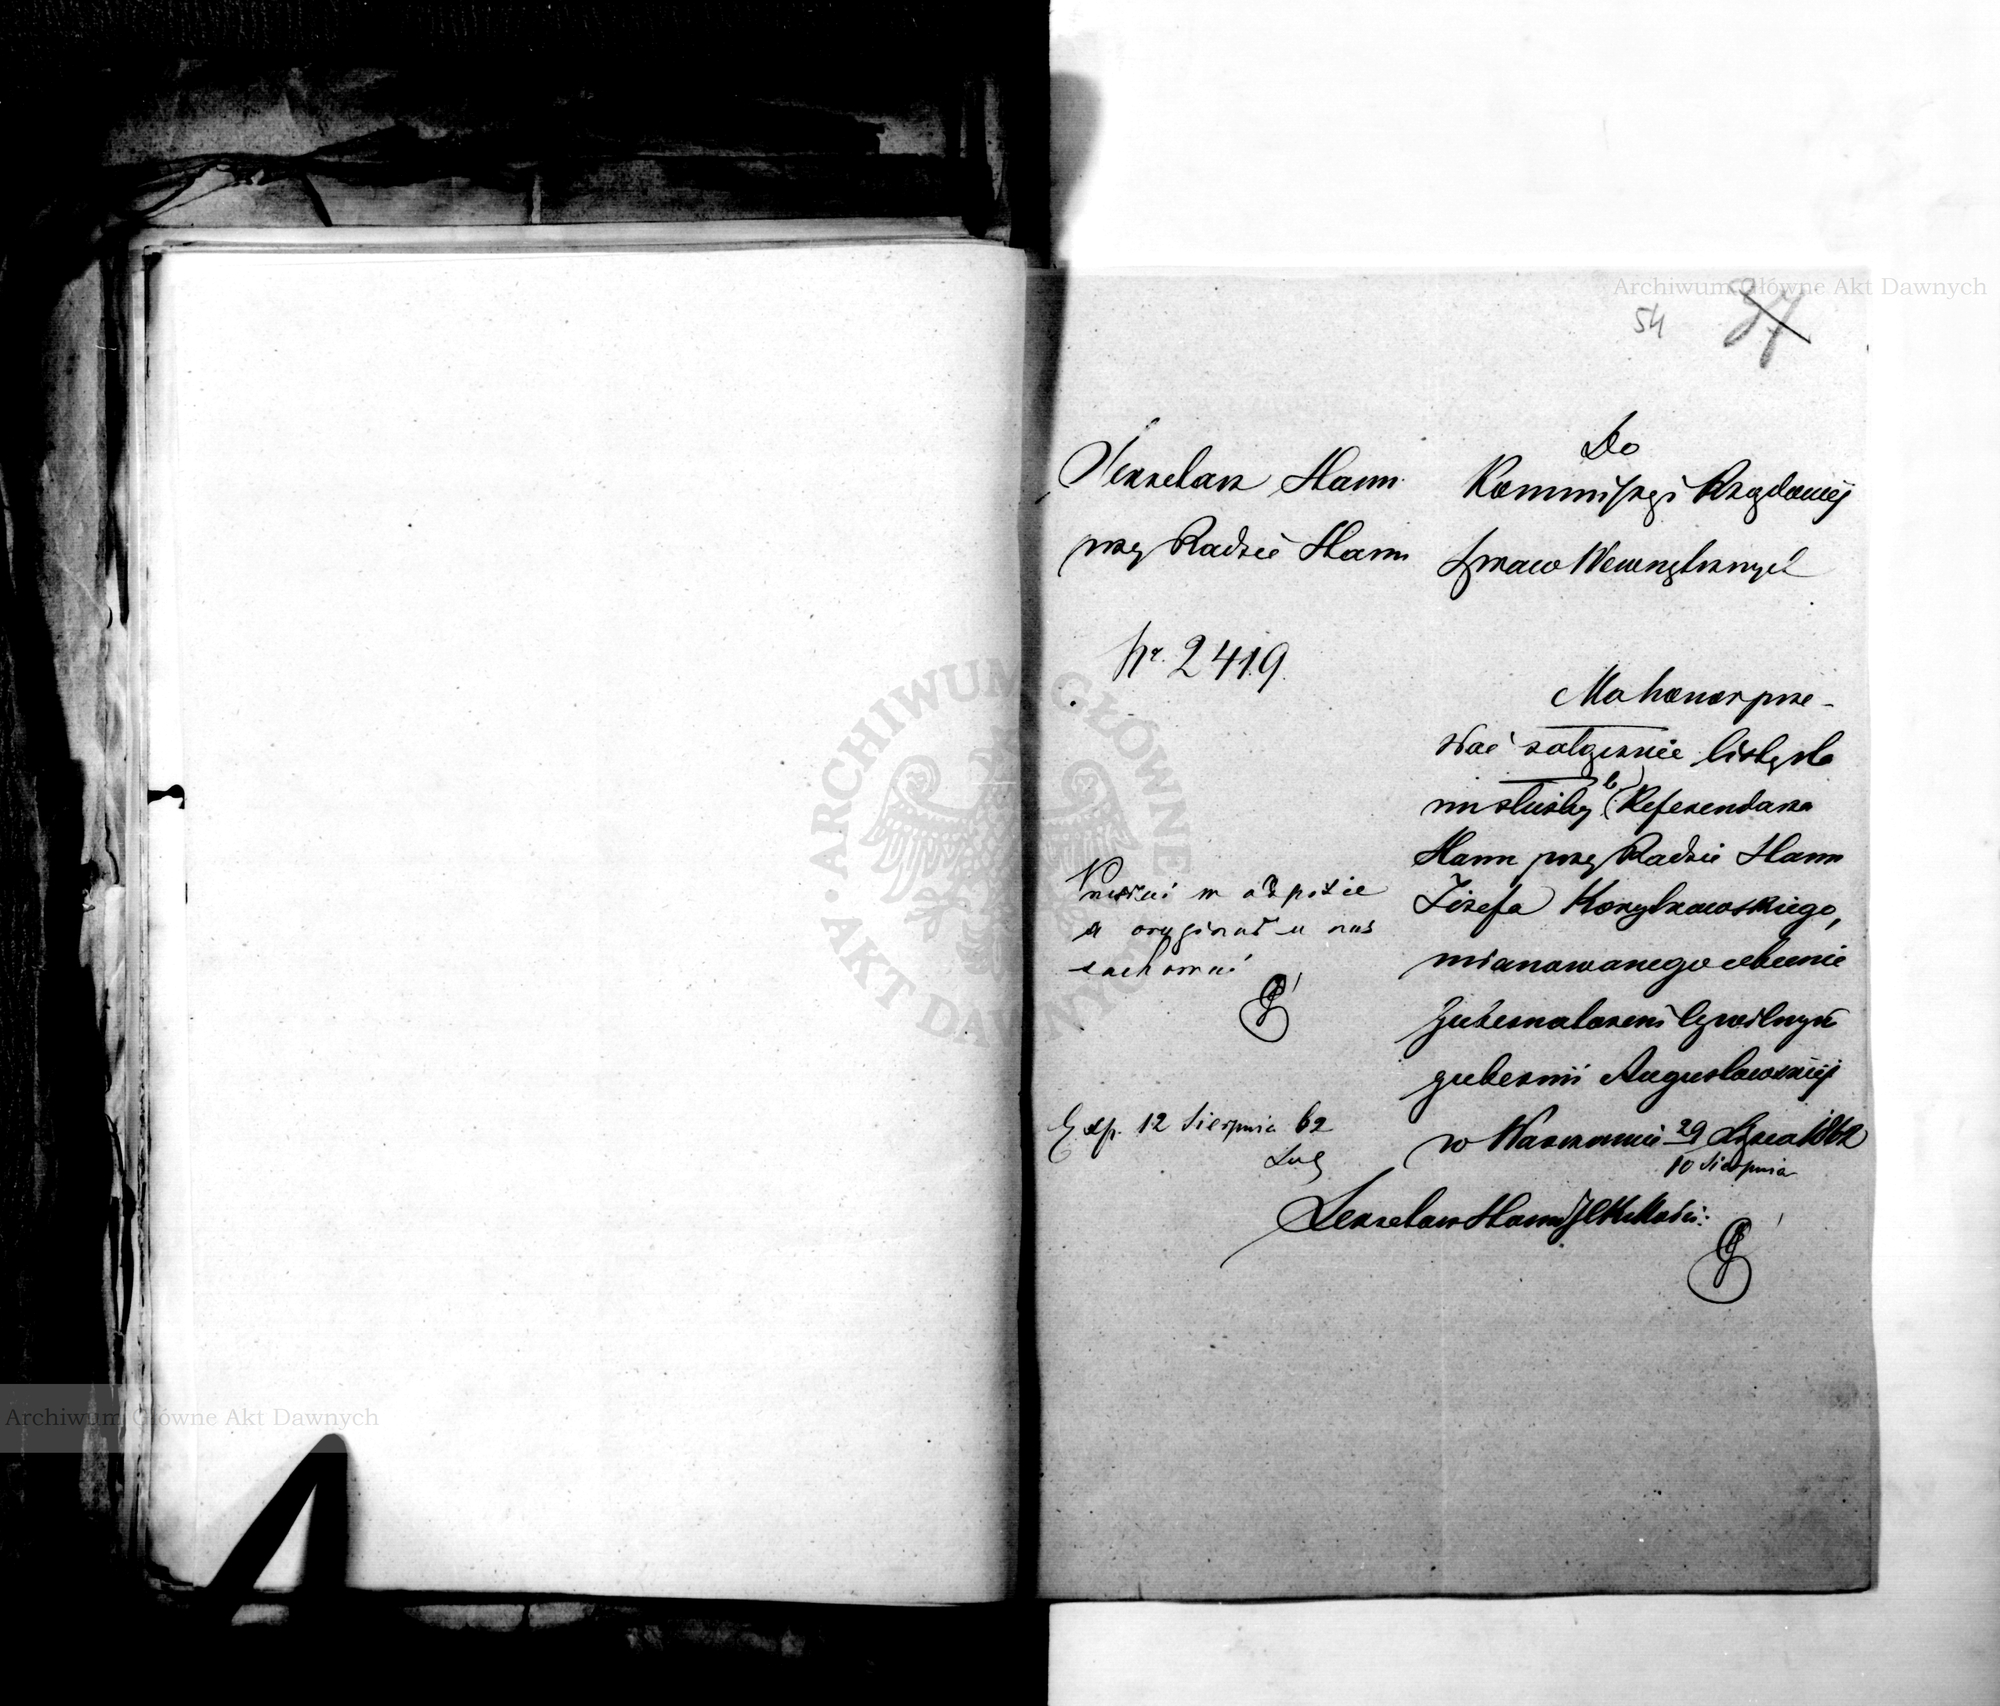 Archiwum Główne Akt Dawnych
54 37
Sekretarz Stanu
przy Radzie Stanu
Nr. 2419.
Do
Kommissyi Rządowéj
Spraw Wewnętrznych
Ma honor prze-
słać załącznie listę sta
nu służby b. (Referendarza
Stanu przy Radzie Stanu
Józefa Korytkowskiego,
mianowanego obecnie
Gubernatorem Cywilnym
gubernii Augustowskiéj
w Warszawie 29 Lipca 1862
10 Sierpnia
Sekretarz Stanu
Przesłać w odpisie
a oryginał u nas
zachować
Exp. 12 Sierpnia 62
ARCHIWUM GŁÓWNE AKT DAWNYCH
Archiwum Główne Akt Dawnych